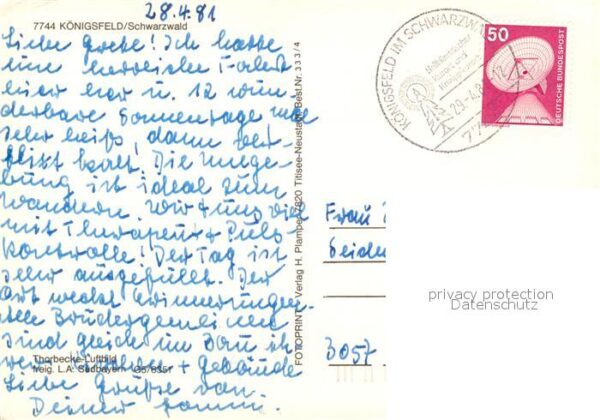 28.4.81
7744 KÖNIGSFELD/Schwarzwald
Liebe Grete! Ich hatte
eine herrliche Fahrt
hier her u. 12 wun-
derbare Sonnentage
sehr heiß, dann
kalt. Die Umge-
bung ist ideal zum
wandern. Wir tun viel
mit Therapeut + Puls-
kontrolle! Der Tag ist
sehr ausgefüllt. Der
Ort weckt Erinnerungen
alle Brüdergemeinen
sind gleich im Bau ih-
rer + Gebäude
Liebe Grüße von
Deiner
Thorbecke-Luftbild
freig. L.A. Südbayern G5/8351
FOTOPRINT - Verlag H. Plamper 7820 Titisee-Neustadt Best.Nr. 333/4
KÖNIGSFELD IM SCHWARZW
Heilklimatischer
Kurort und
Kneippkurort
29.-4.8
77
50
DEUTSCHE BUNDESPOST
Frau
3057
privacy protection
Datenschutz